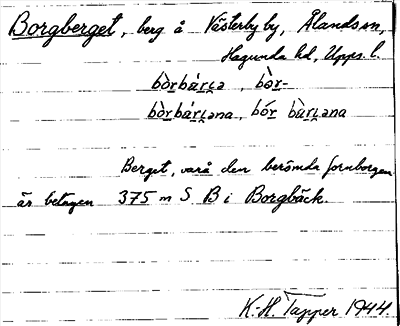 Borgberget, berg å Västerby by, Ålands sn,
Hagunda hd, Upps. l.
bòrbárɩ̯a, bòr-
bòrbárɩ̯ana, bór bàrɩ̯ana
Berget, varå den berömda fornborgen
är belägen 375 m S B i Borgbäck.
K.-H. Tapper 1944.